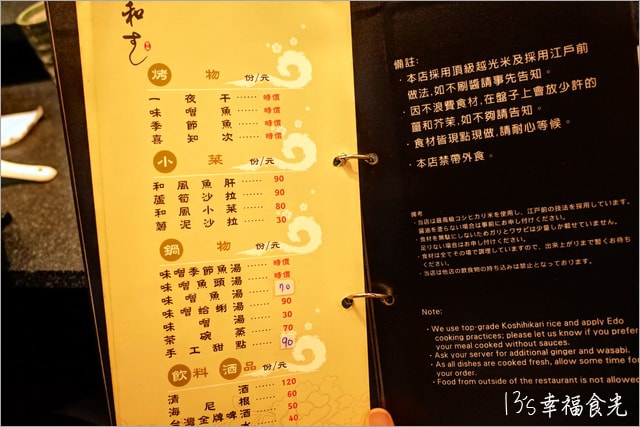 和す
烤物 份/元
一夜干……時價
味噌魚……時價
季節魚……時價
喜知次……時價
小菜 份/元
和風魚肝……90
蘆筍沙拉……90
和風小菜……80
薯泥沙拉……30
鍋物 份/元
味噌季節魚湯……時價
味噌魚頭湯……時價
味噌魚湯……70
味噌蛤蜊湯……90
味噌湯……30
茶碗蒸……70
手工甜點……90
飲料 酒品 份/元
清酒……120
海尼根……60
台灣金牌啤酒……50
水……40
備註:
·本店採用頂級越光米及採用江戶前
做法,如不刷醬請事先告知。
·因不浪費食材,在盤子上會放少許的
薑和芥茉,如不夠請告知。
·食材皆現點現做,請耐心等候。
·本店禁帶外食。
備考
·当店は最高級コシヒカリ米を使用し、江戸前の技法を採用しています。
醤油を塗らない場合は事前にお申し付けください。
·食材を無駄にしないためガリとワサビは少量しか載せていません。
足りない場合はお申し付けください。
·食材は全てその場で調理していますので、出来上がりまで暫くお待ち
ください。
·当店は他店の飲食物の持ち込みは禁止となっております。
Note:
· We use top-grade Koshihikari rice and apply Edo
cooking practices; please let us know if you prefer
your meal cooked without sauces.
· Ask your server for additional ginger and wasabi.
· As all dishes are cooked fresh, allow some time for
your order.
· Food from outside of the restaurant is not allowed
13's幸福食光